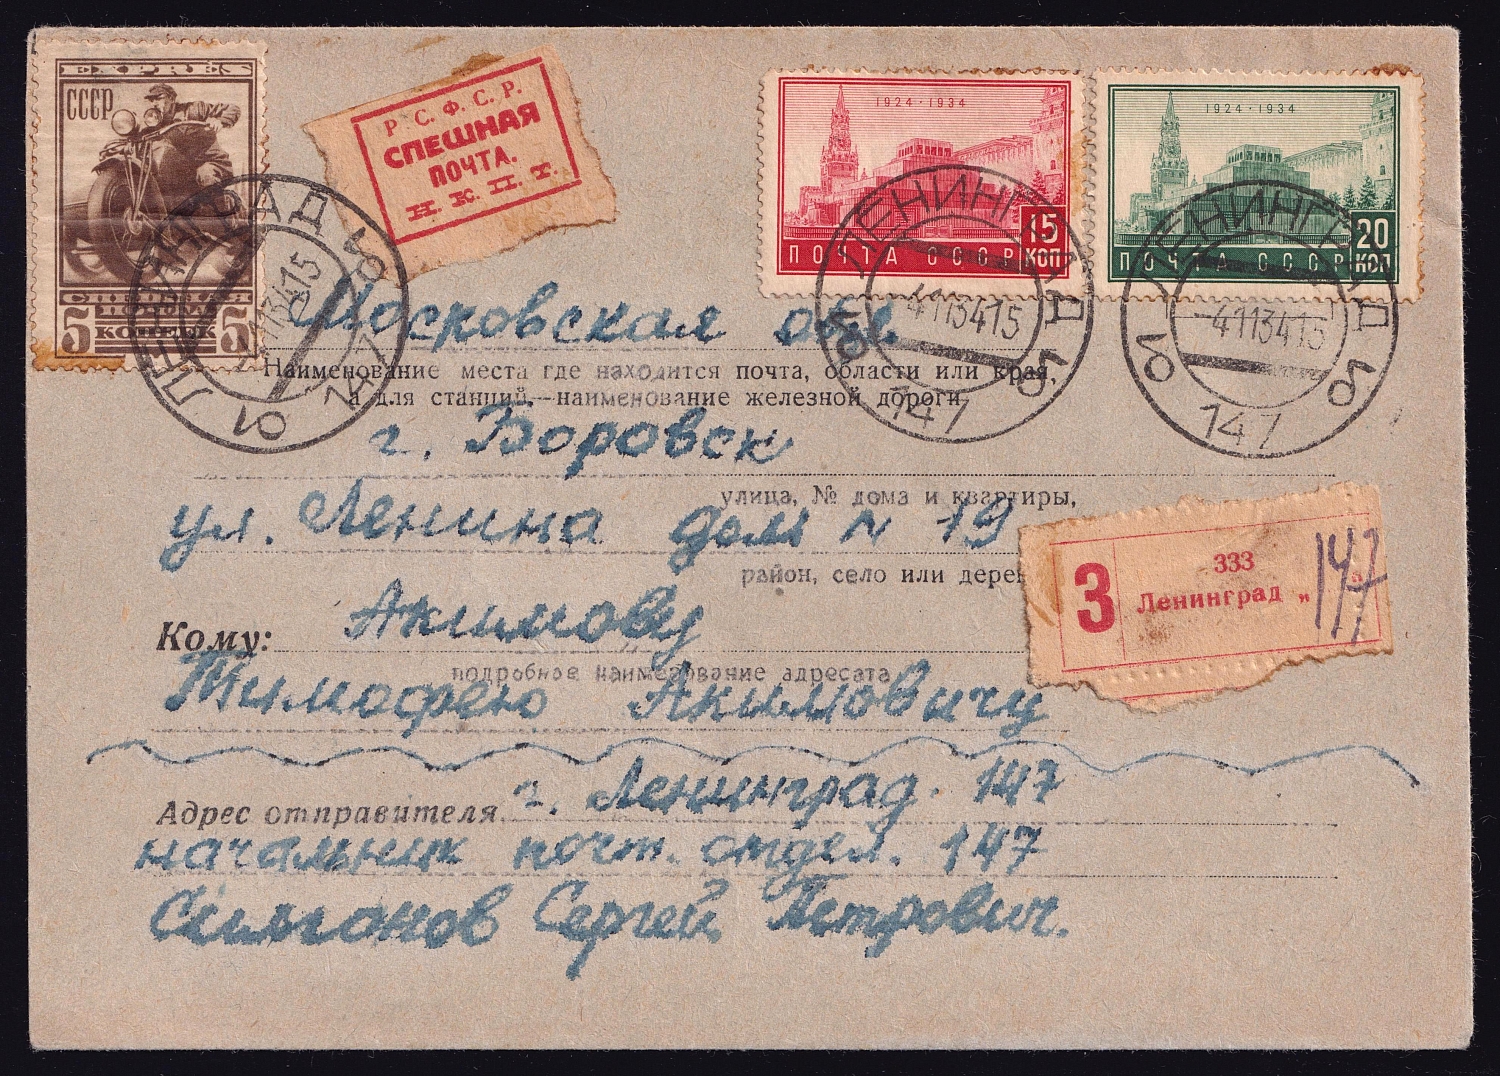 EXPRÈS
СССР
СПЕШНАЯ
ПОЧТА
5 КОПЕЕК 5
Р. С. Ф. С. Р.
СПЕШНАЯ
ПОЧТА.
Н. К. П. Т.
1924 · 1934
15
ПОЧТА СССР КОП
1924 · 1934
20
ПОЧТА СССР КОП
ЛЕНИНГРАД
4113415
147
ЛЕНИНГРАД
-4113415
147
ЛЕНИНГРАД
-4113415
147
Московская обл.
Наименование места где находится почта, области или края,
а для станций—наименование железной дороги
г. Боровск
улица, № дома и квартиры,
ул. Ленина дом N 19
район, село или дерев
3
333
Ленинград „
147
Кому: Акимову
подробное наименование адресата
Тимофею Акимовичу
Адрес отправителя г. Ленинград. 147
начальник почт. отдел. 147
Симонов Сергей Петрович.